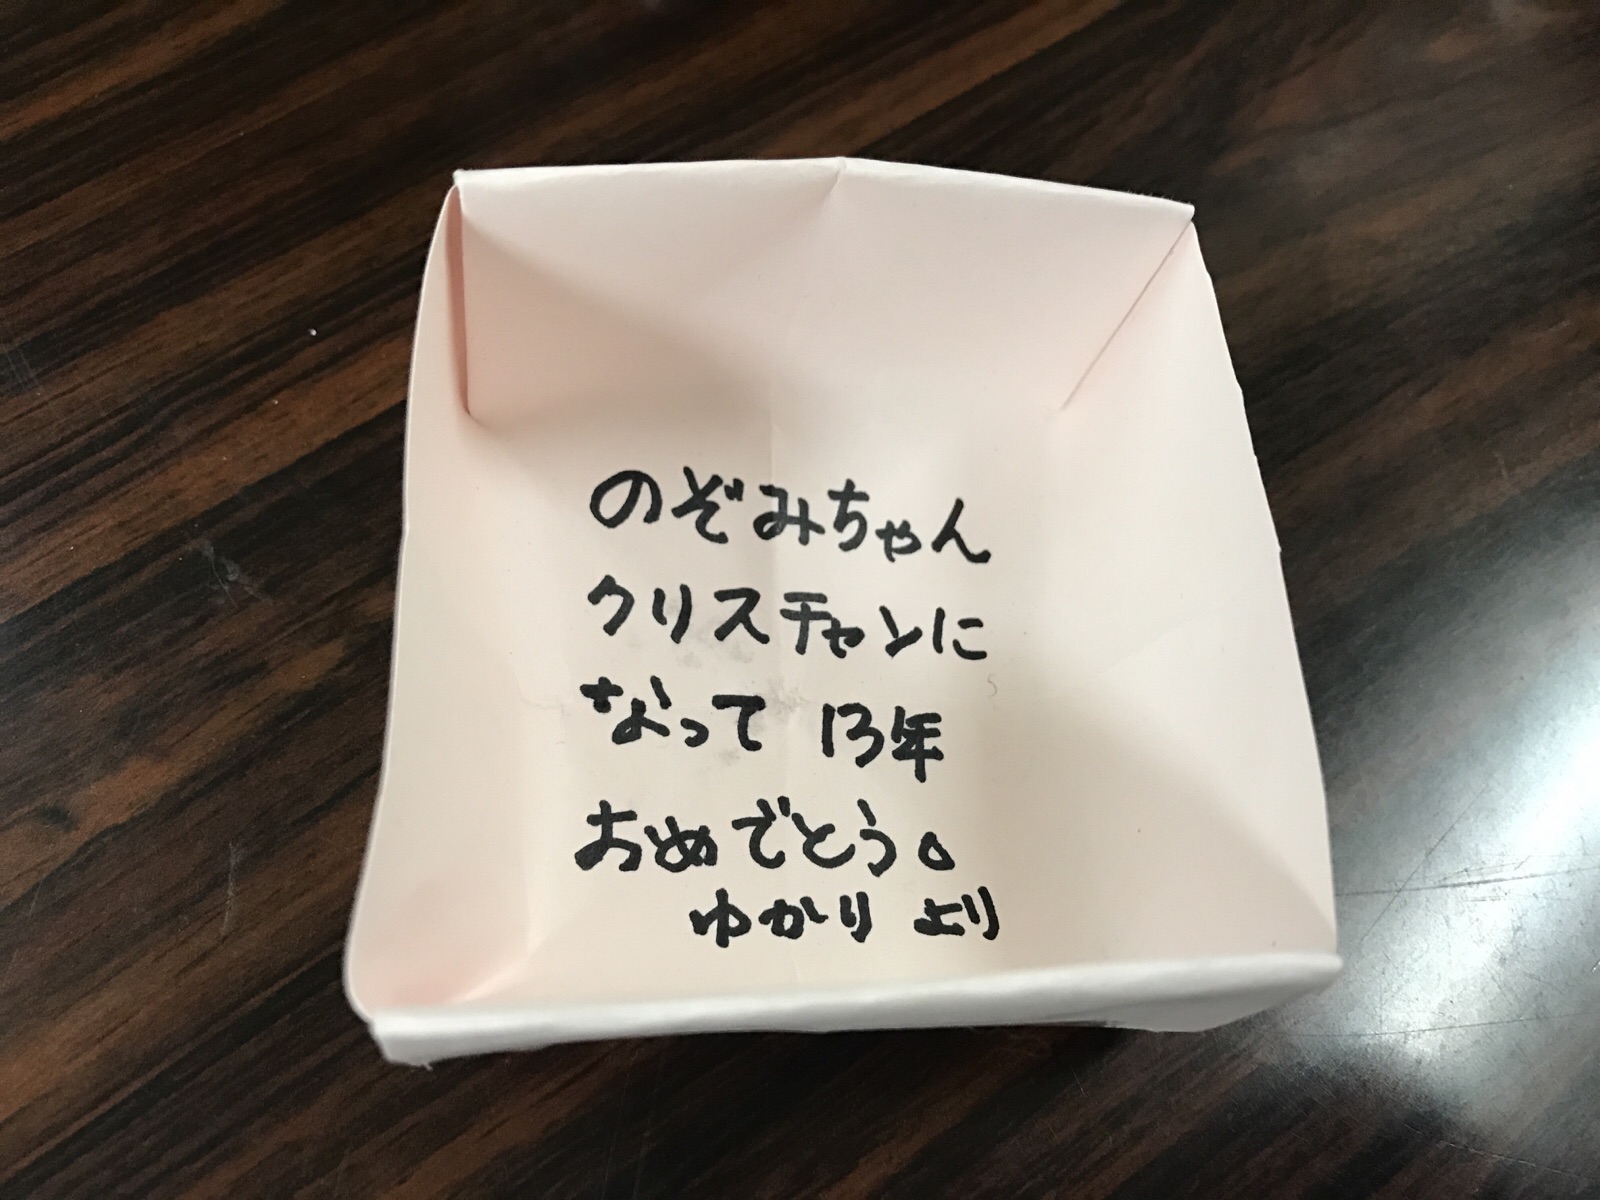 のぞみちゃん
クリスチャンに
なって 13年
おめでとう。
ゆかり より